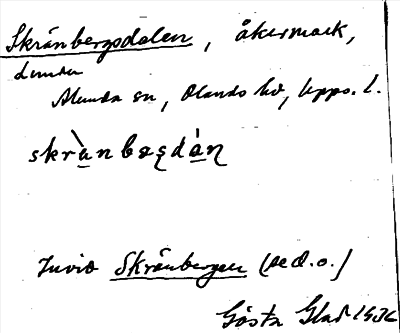 Skränbergsdalen, åkermark,
Lunda
Alunda sn, Olands hd, Upps. l.
skrànbæṣdàn
Invid Skränbergen (se d. o.)
Gösta Glad 1936